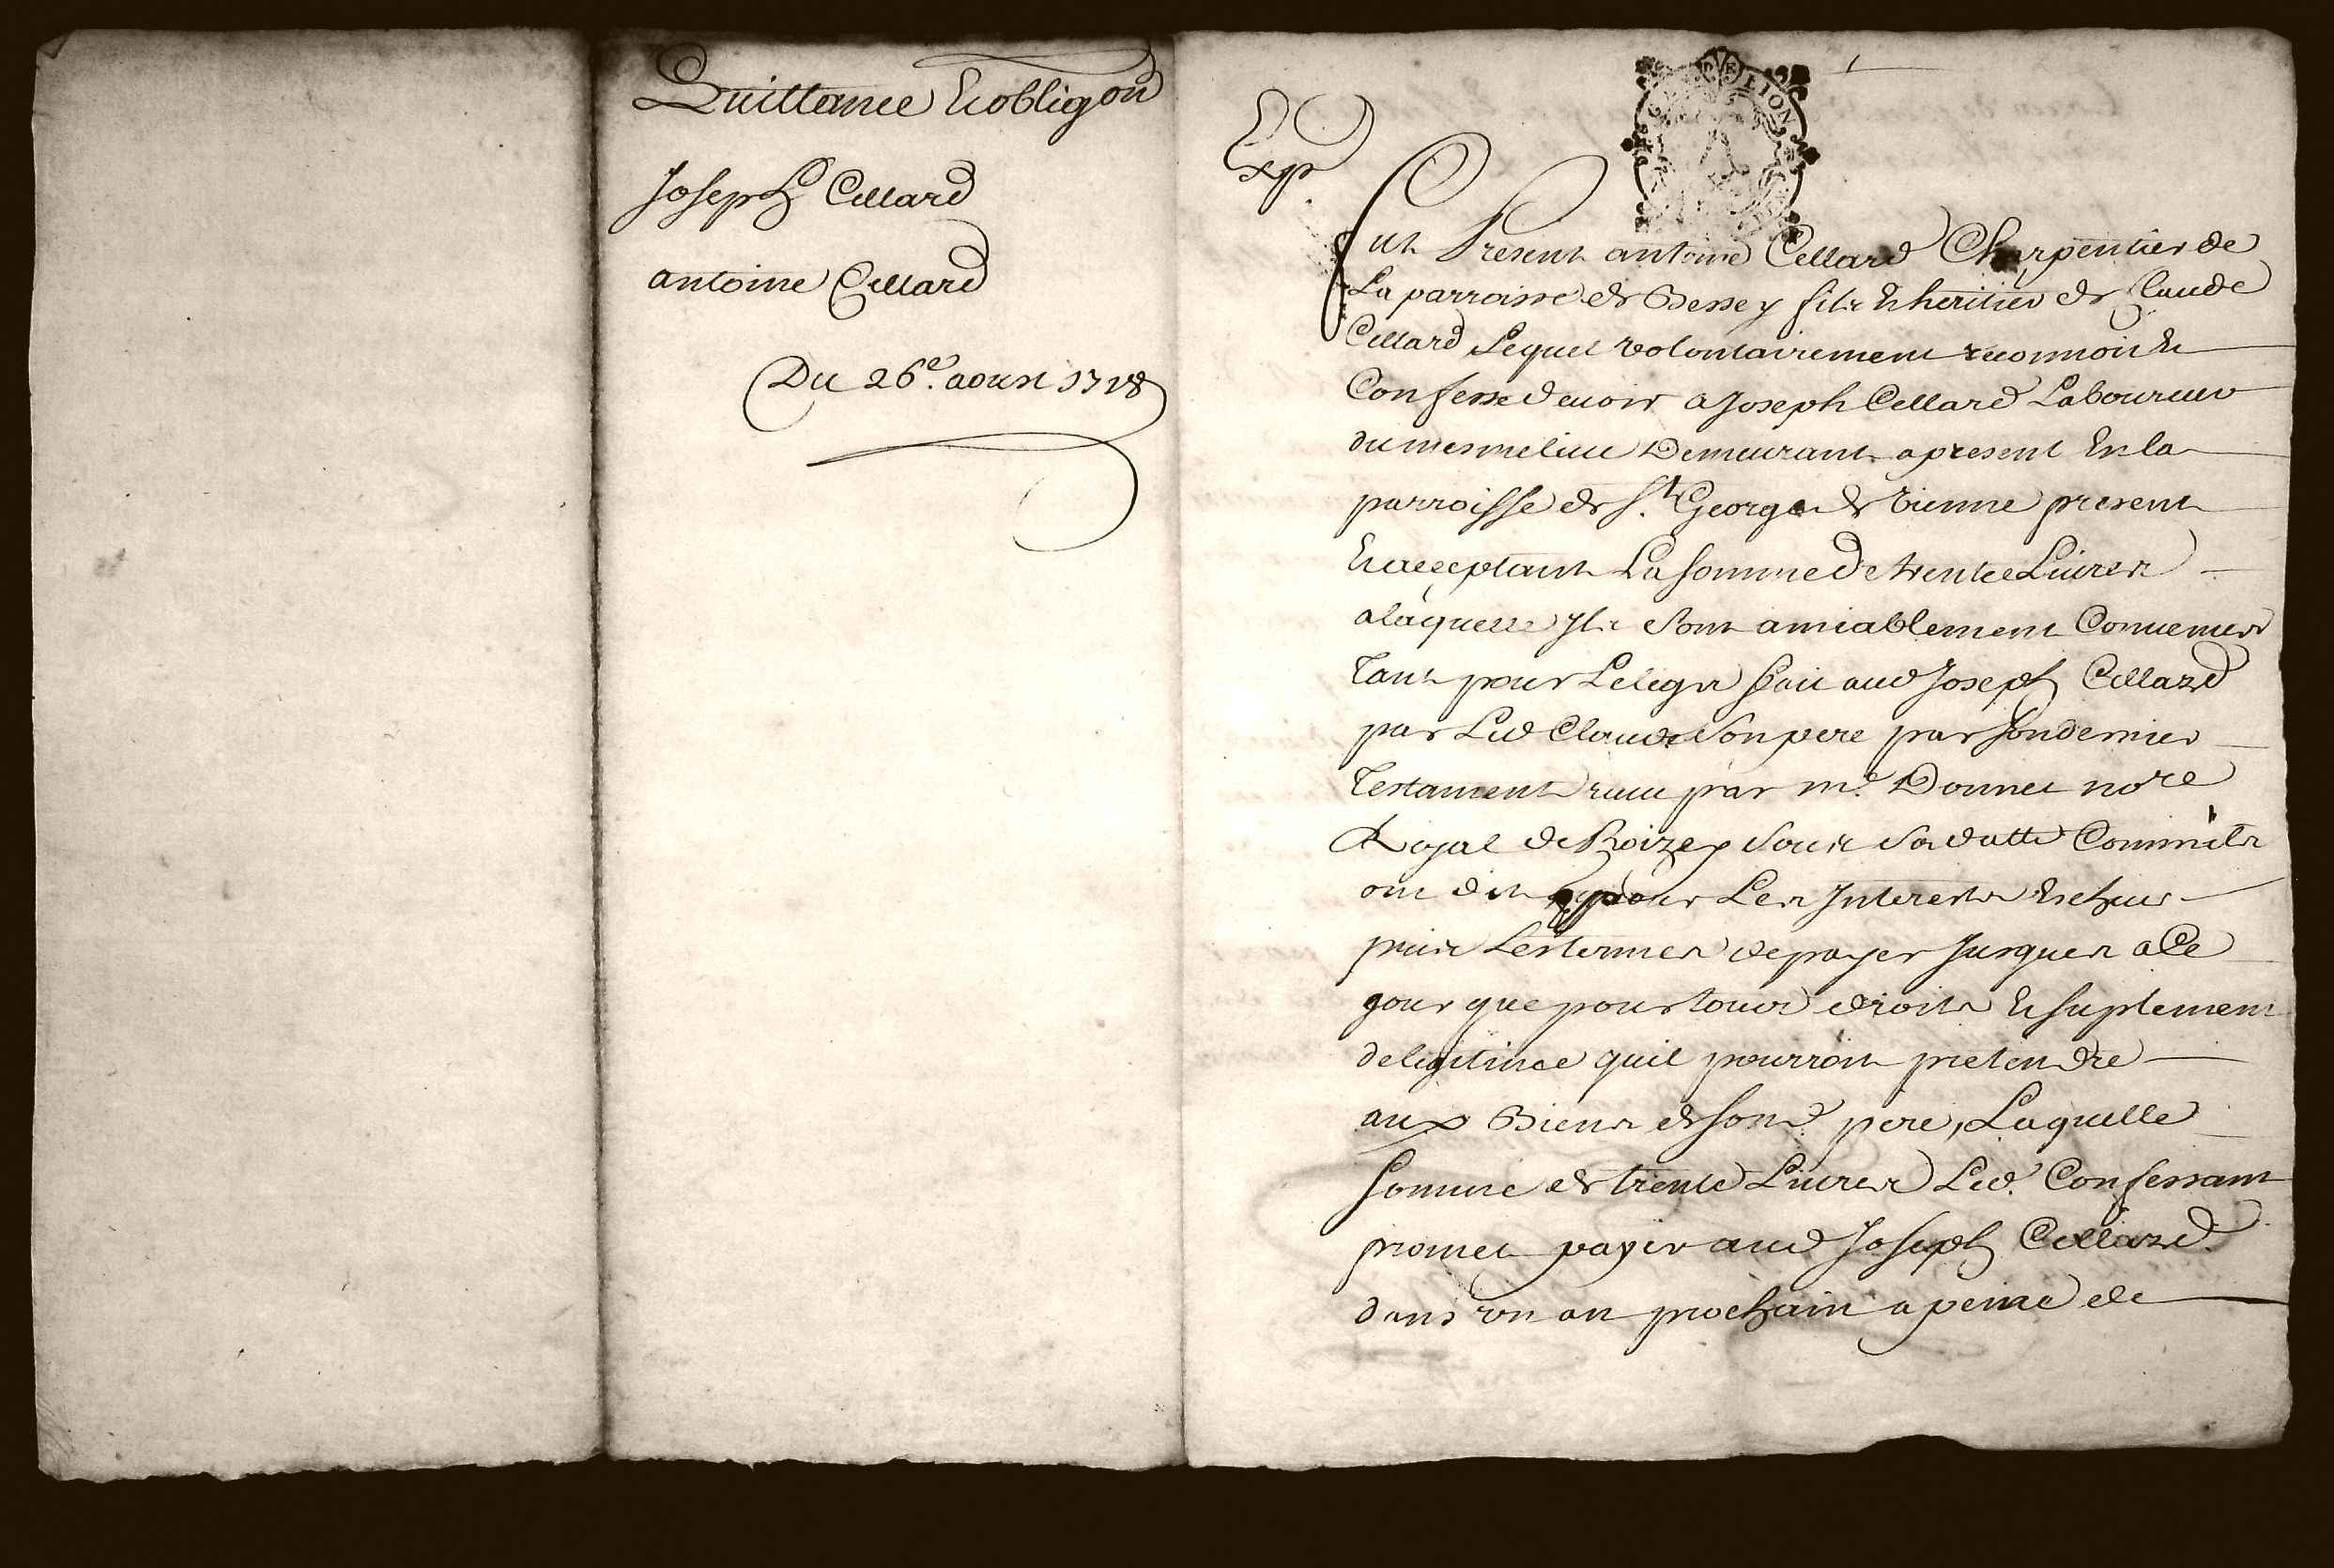 Quittance Et obligõn
Joseph Cellard
antoine Cellard
Du 26e. aoust 1718
Exp
fut Present antoine Cellard Charpentier de
La parroisse de Bessey fils et heritier de Claude
Cellard Lequel volontairement reconnoit et
Confesse devoir a Joseph Cellard Laboureur
du mesme lieu Demeurant a present En la
parroisse de St. George de vienne present
Et acceptant La somme de trente Livres
a laquelle Ils sont amiablement Convenus
Tant pour Le legs fait aud Joseph Cellard
par Led Claude son pere par son dernier
Testament receu par me. Donnet nore
Royal de Roizey sous sa datte Comme ils
ont dit pour Les Interests Escheus
puis Les termes de payer Jusques a Ce
jour que pour tous droits Et suplement
de legitime quil pourroit pretendre
aux Biens de sond. pere, Laquelle
somme de trente Livres Led. Confessant
promet payer aud Joseph Cellard
dans vn an prochain a peine de